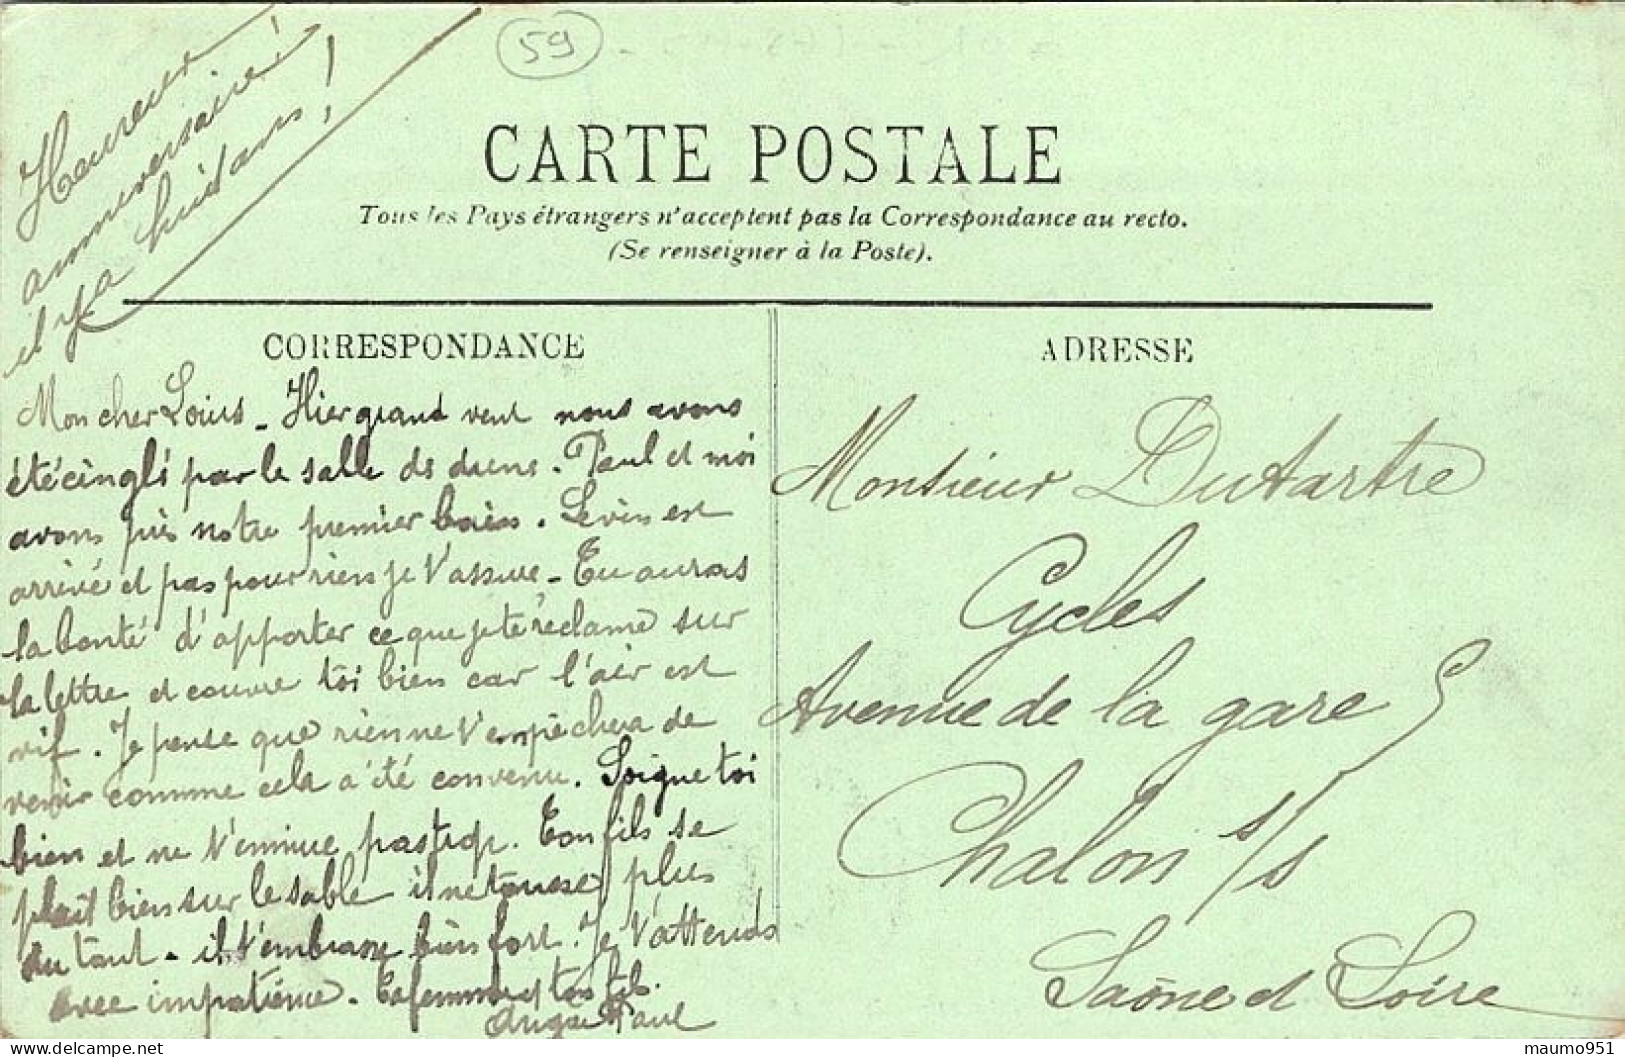 59
Heureux
anniversaire!
il y a huit ans!
CARTE POSTALE
Tous les Pays étrangers n'acceptent pas la Correspondance au recto.
(Se renseigner à la Poste).
CORRESPONDANCE
Mon cher Louis _ Hier grand vent nous avons
été cinglé par le salle de dune. Paul et moi
avons pris notre premier bain. Le vin est
arrivé et pas pour rien je t'assure _ Tu auras
la bonté d'apporter ce que je te réclame sur
la lettre et couvre toi bien car l'air est
vif. Je pense que rien ne t'empêchera de
venir comme cela a été convenu. Soigne toi
bien et ne t'ennuie pas trop. Ton fils se
plait bien sur le sable il ne tousse plus
du tout - il t'embrasse bien fort. Je t'attends
avec impatience. Ta femme et ton fils.
Paul
ADRESSE
Monsieur Dutartre
Cycles
Avenue de la gare 5
Chalon s/s
Saône et Loire
maumo951